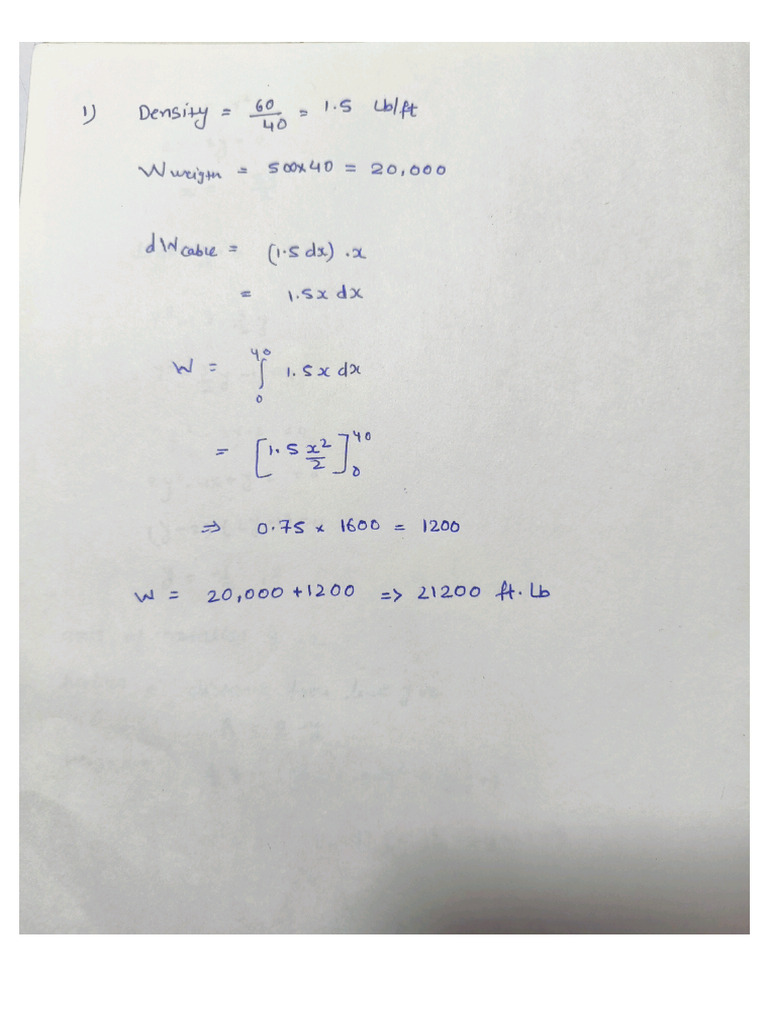 1) Density = 60/40 = 1.5 Lb/ft
W weight = 500x40 = 20,000
dW cable = (1.5 dx) . x
= 1.5x dx
W = ∫₀⁴⁰ 1.5x dx
= [1.5 x²/2]₀⁴⁰
⇒ 0.75 x 1600 = 1200
W = 20,000 + 1200 => 21200 ft. Lb